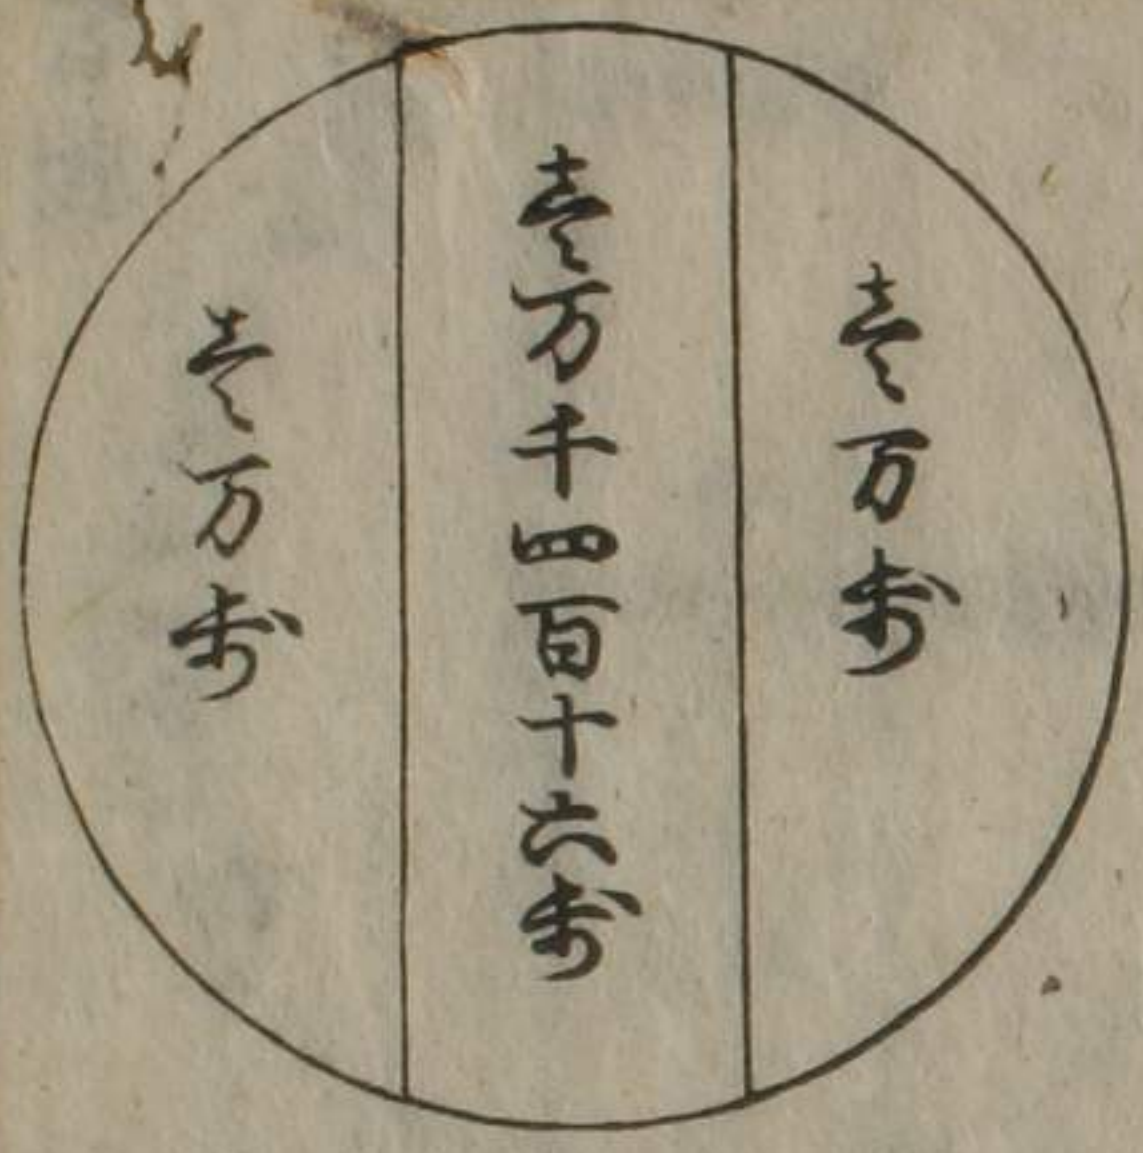 壱万歩
壱万千四百十六歩
壱万歩